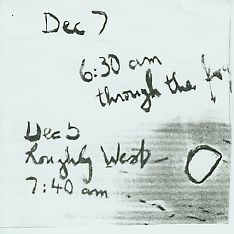 Dec 7
6:30 am
through the fog
Dec 5
Roughly West
7:40 am